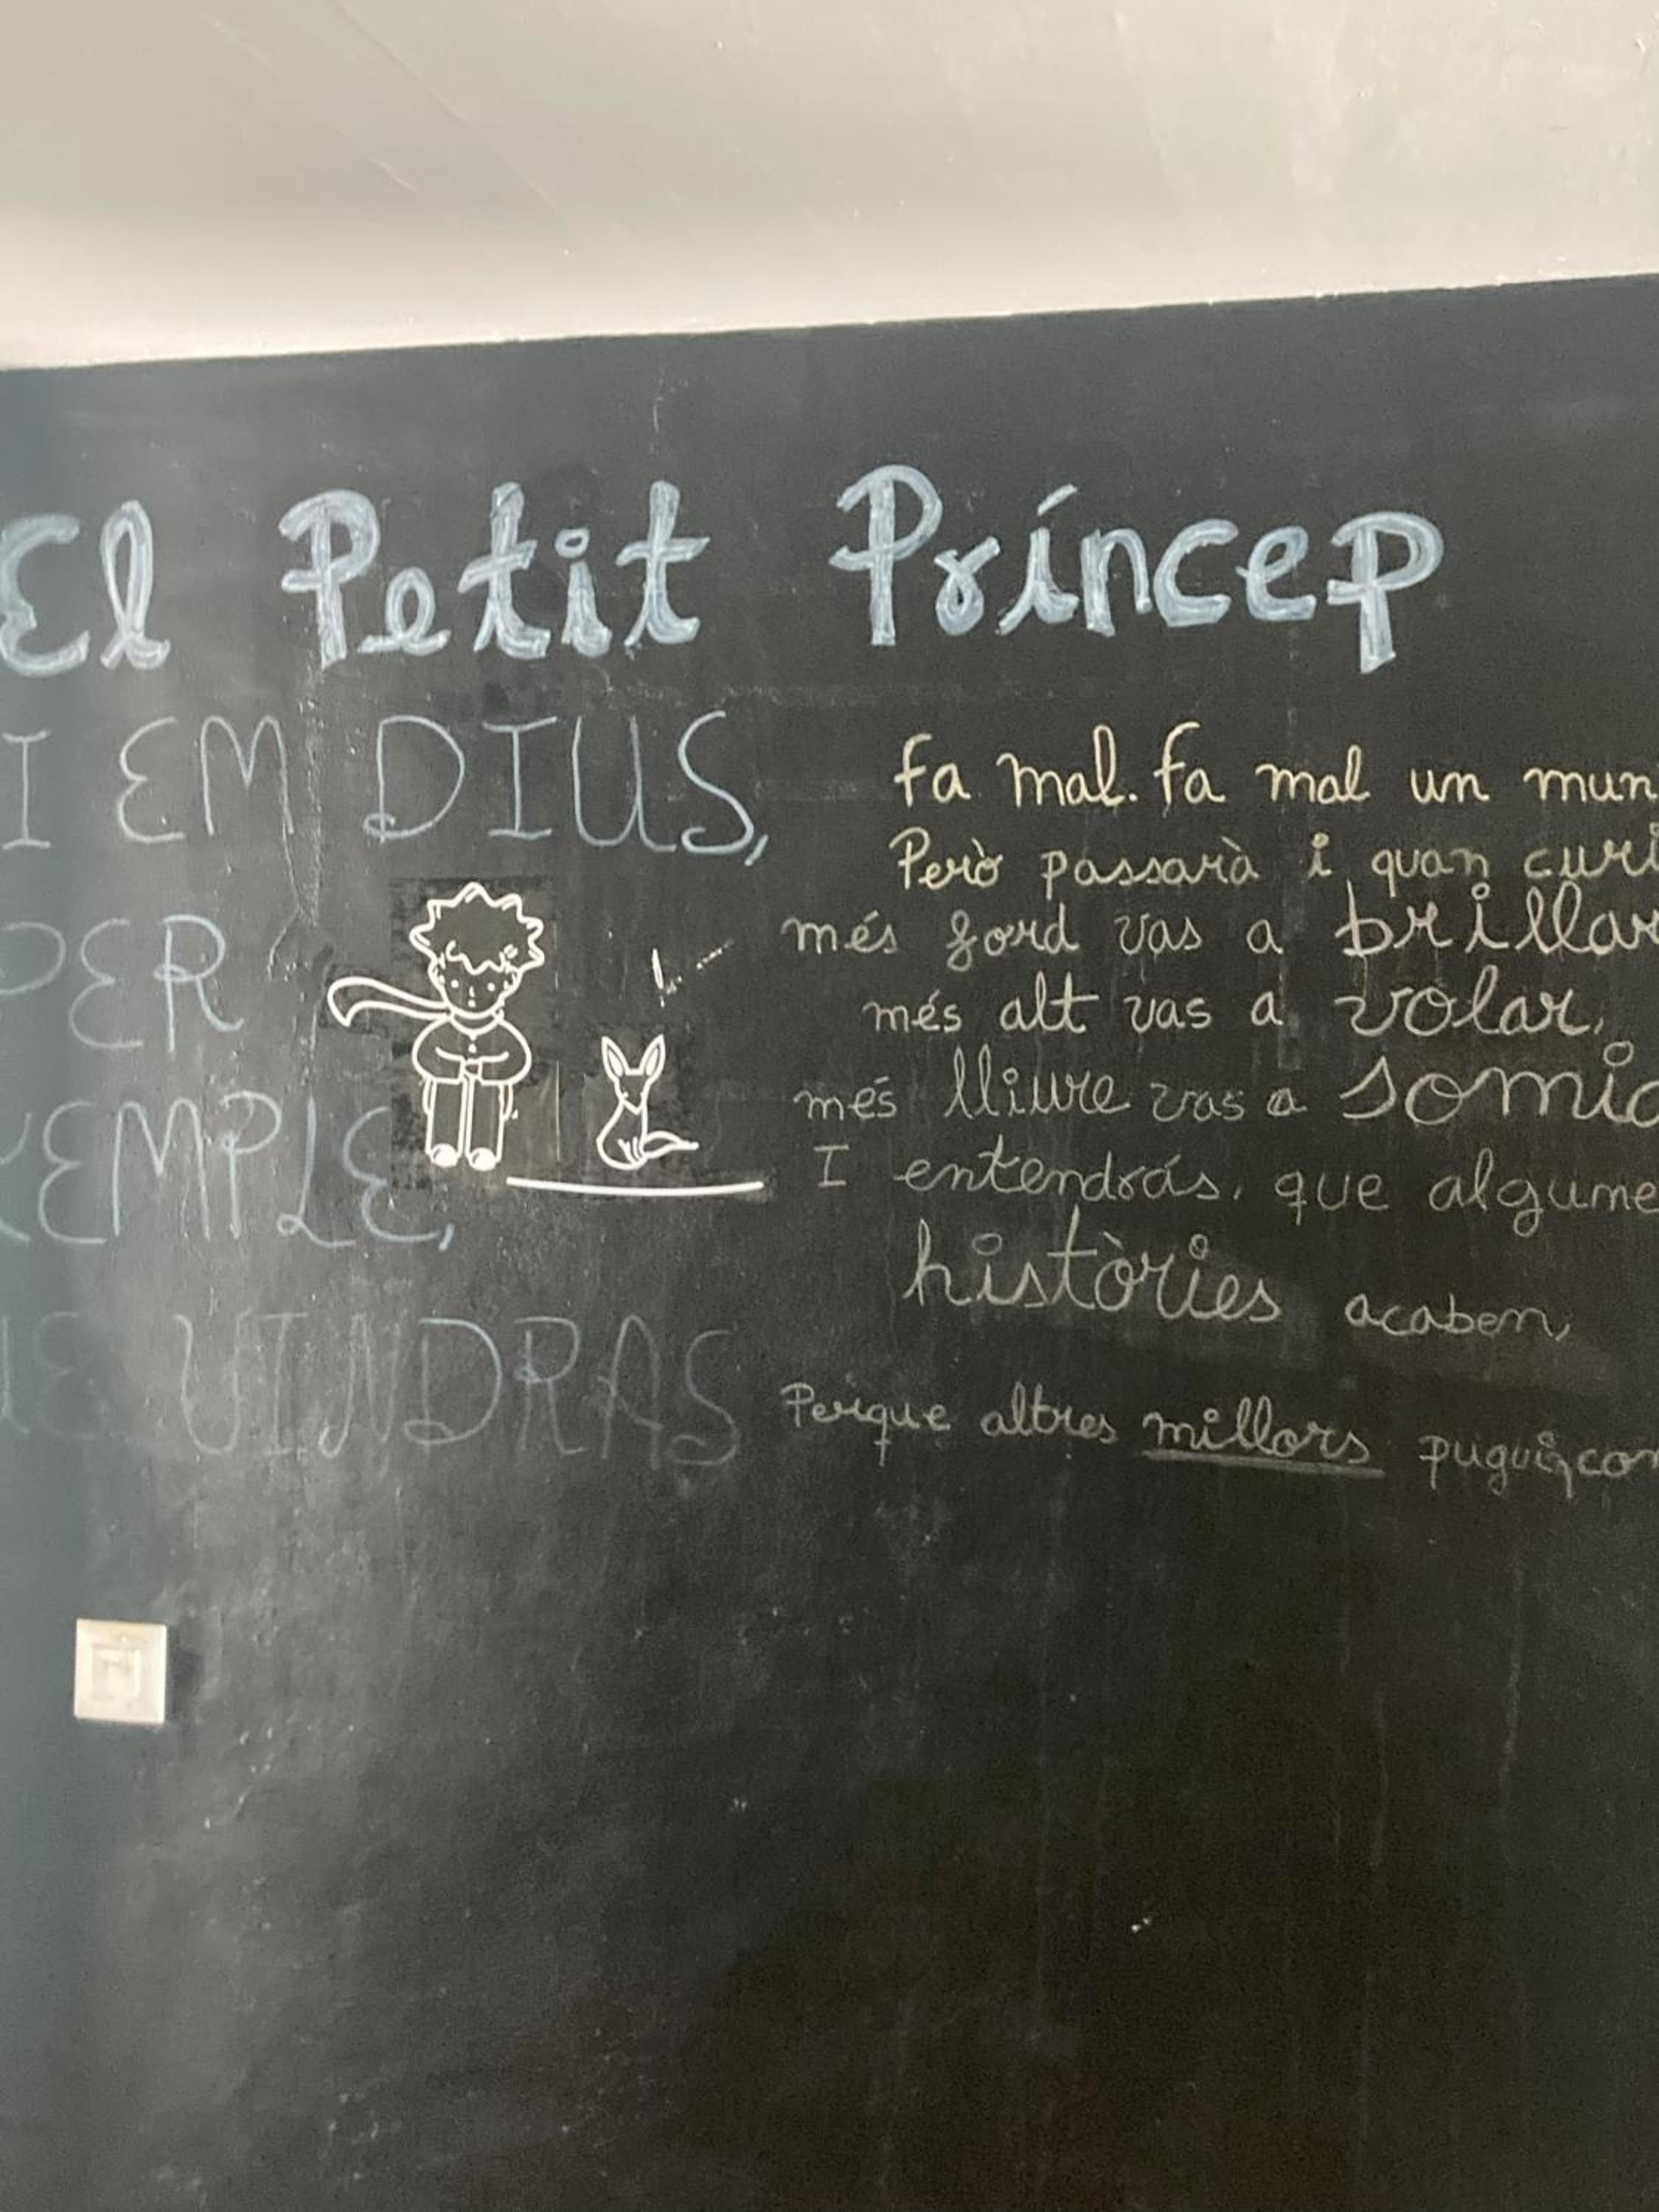 El Petit Príncep
I EM DIUS,
PER
XEMPLE,
VINDRAS
fa mal. fa mal un mun
Però passarà i quan curi
més ford vas a brillar
més alt vas a volar,
més lliure vas a somia
I entendrás, que algume
històries acaben,
Perque altres millors puguin com